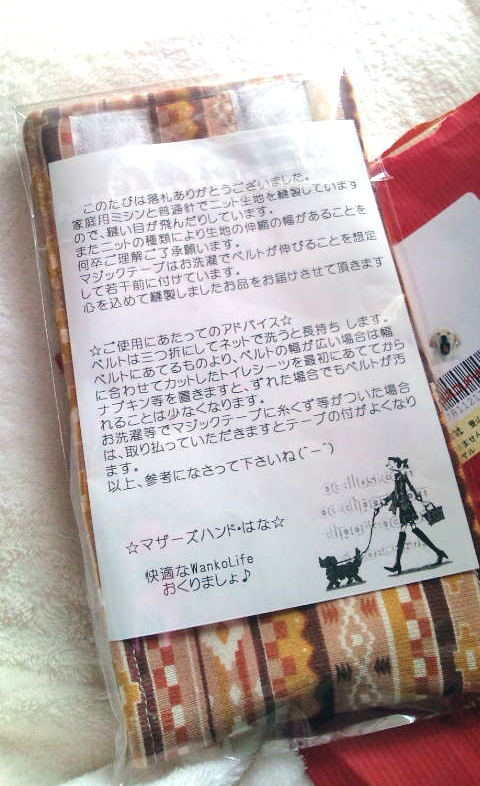 このたびは落札ありがとうございました。
家庭用ミシンと普通針でニット生地を縫製しています
ので、縫い目が飛んだりしています。
またニットの種類により生地の伸縮の幅があることを
何卒ご理解ご了承願います。
マジックテープはお洗濯でベルトが伸びることを想定
して若干前に付けています。
心を込めて縫製しましたお品をお届けさせて頂きます
☆ご使用にあたってのアドバイス☆
ベルトは三つ折にしてネットで洗うと長持ちします。
ベルトにあてるものより、ベルトの幅が広い場合は幅
に合わせてカットしたトイレシーツを最初にあててから
ナプキン等を置きますと、ずれた場合でもベルトが汚
れることは少なくなります。
お洗濯等でマジックテープに糸くず等がついた場合
は、取り払っていただきますとテープの付がよくなり
ます。
以上、参考になさって下さいね(^ー^)
☆マザーズハンド・はな☆
快適なWankoLife
おくりましょ♪